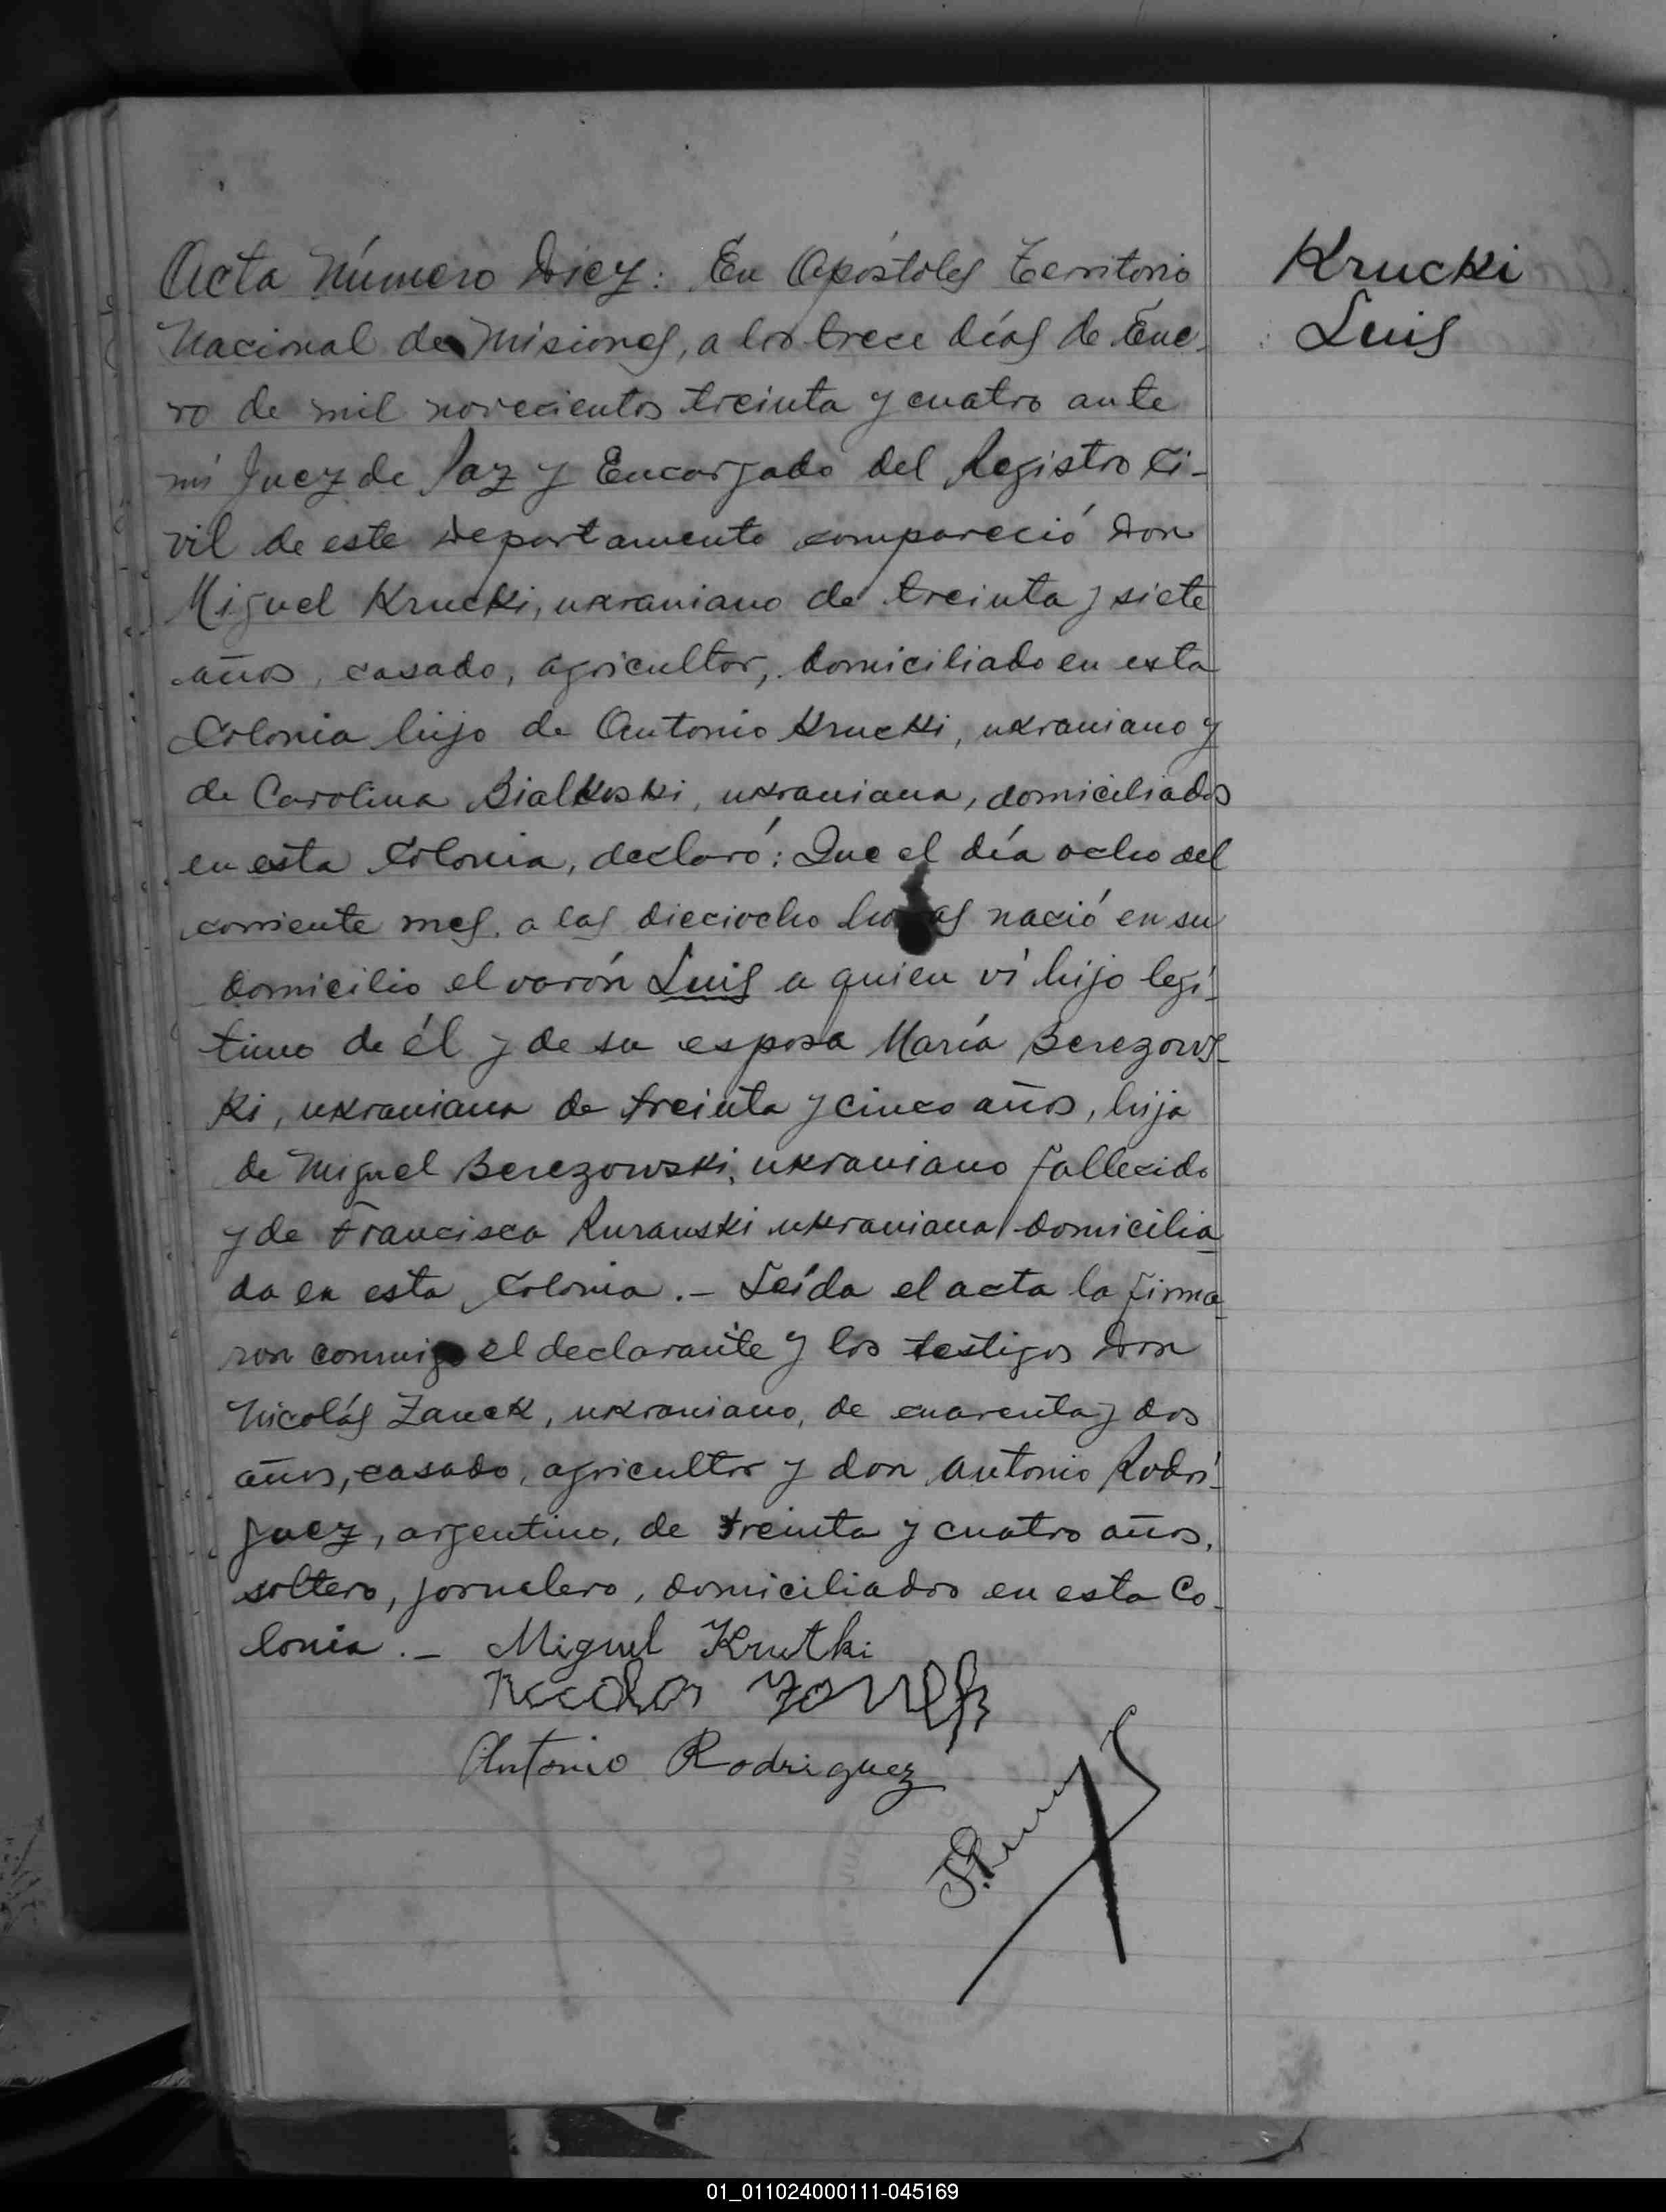 Acta Número Diez: En Apóstoles Territorio
Nacional de Misiones, a los trece días de Ene-
ro de mil novecientos treinta y cuatro ante
mi Juez de Paz y Encargado del Registro Ci-
vil de este Departamento compareció Don
Miguel Krucki, ukraniano de treinta y siete
años, casado, agricultor, domiciliado en esta
Colonia hijo de Antonio Krucki, ukraniano y
de Carolina Bialkoski, ukraniana, domiciliados
en esta Colonia, declaró: Que el día ocho del
corriente mes, a las dieciocho horas nació en su
domicilio el varón Luis a quien ví hijo legí-
timo de él y de su esposa María Berezows-
ki, ukraniana de treinta y cinco años, hija
de Miguel Berezowski, ukraniano fallecido
y de Francisca Ruranski ukraniana domicilia-
da en esta Colonia.- Leída el acta la firma-
ron conmigo el declarante y los testigos Don
Nicolás Zanek, ukraniano, de cuarenta y dos
años, casado, agricultor y don Antonio Rodrí-
guez, argentino, de treinta y cuatro años,
soltero, jornalero, domiciliados en esta Co-
lonia.- Miguel Krutki
Antonio Rodriguez
Krucki
Luis
01_011024000111-045169